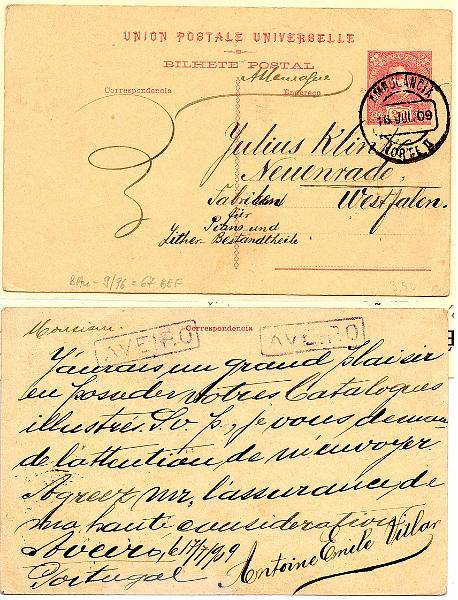 UNION POSTALE UNIVERSELLE
BILHETE POSTAL
Allemagne
Correspondencia Endereço
AMBULANCIA
16 JUL 09
NORTE II
Julius Klin
Neuenrade,
Westfalen.
Fabriken
für
Piano und
Zither-Bestandtheile
BAu - 9/96 = 67 BEF
Monsieur.
Correspondencia
AVEIRO AVEIRO
J'aurais un grand plaisir
en posseder votres Catalogues
illustrés. S. v. p., je vous deman
de l'attention de m'envoyer.
Agreez, mr, l'assurance de
ma haute consideration
Aveiro, 17/7/909
Portugal
Antoine Emile Villar